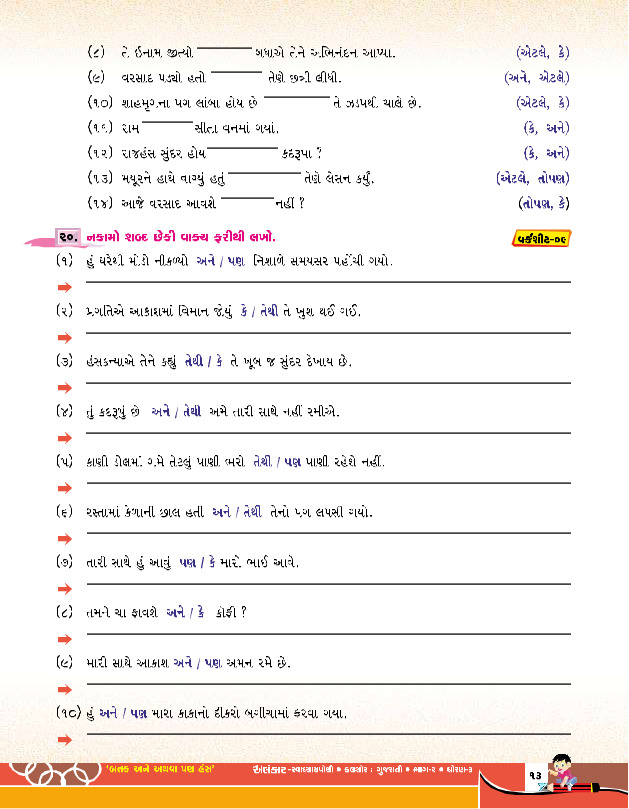 (૮) તે ઈનામ જીત્યો ________ બધાએ તેને અભિનંદન આપ્યા. (એટલે, કે)
(૯) વરસાદ પડ્યો હતો ________ તેણે છત્રી લીધી. (અને, એટલે)
(૧૦) શાહમૃગના પગ લાંબા હોય છે ________ તે ઝડપથી ચાલે છે. (એટલે, કે)
(૧૧) રામ ________ સીતા વનમાં ગયાં. (કે, અને)
(૧૨) રાજહંસ સુંદર હોય ________ કદરૂપા ? (કે, અને)
(૧૩) મયૂરને હાથે વાગ્યું હતું ________ તેણે લેસન કર્યું. (એટલે, તોપણ)
(૧૪) આજે વરસાદ આવશે ________ નહીં ? (તોપણ, કે)
૨૦. નકામો શબ્દ છેકી વાક્ય ફરીથી લખો. વર્કશીટ-૦૯
(૧) હું ઘરેથી મોડો નીકળ્યો અને / પણ નિશાળે સમયસર પહોંચી ગયો.
(૨) પ્રગતિએ આકાશમાં વિમાન જોયું કે / તેથી તે ખુશ થઈ ગઈ.
(૩) હંસકન્યાએ તેને કહ્યું તેથી / કે તે ખૂબ જ સુંદર દેખાય છે.
(૪) તું કદરૂપું છે અને / તેથી અમે તારી સાથે નહીં રમીએ.
(૫) કાણી ડોલમાં ગમે તેટલું પાણી ભરો તેથી / પણ પાણી રહેશે નહીં.
(૬) રસ્તામાં કેળાની છાલ હતી અને / તેથી તેનો પગ લપસી ગયો.
(૭) તારી સાથે હું આવું પણ / કે મારો ભાઈ આવે.
(૮) તમને ચા ફાવશે અને / કે કૉફી ?
(૯) મારી સાથે આકાશ અને / પણ અમન રમે છે.
(૧૦) હું અને / પણ મારા કાકાનો દીકરો બગીચામાં ફરવા ગયા.
'બતક અને અથવા પણ હંસ' અલંકાર-સ્વાધ્યાયપોથી • કલશોર : ગુજરાતી • ભાગ-૨ • ધોરણ-૩ ૧૩